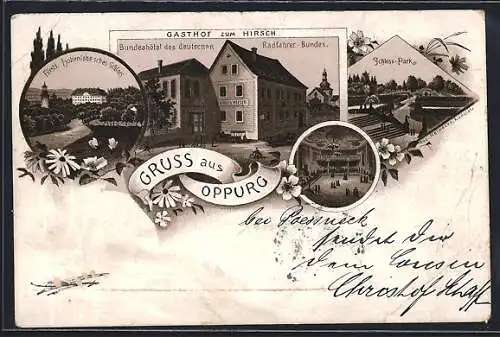 GASTHOF ZUM HIRSCH
Bundeshôtel des deutschen Radfahrer-Bundes.
Fürstl. Hohenlohe'sches Schloss
Schloss-Park
GRUSS aus
OPPURG
bei Poessneck
sendet Dir
Dein Cousin
Christof Schaff